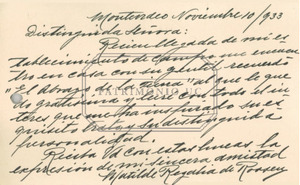 Montevideo Noviembre 10/933
Distinguida Señora:
Recien llegada de mi es-
tablecimiento de Campo me encuen
tro en casa con su recuerdo
"El Abrazo al que le que
gratisima y leire con todo el in
teres que me ha inspirado su ex
quisito trato y su distinguida
personalidad.
Reciba Ud con estas lineas la
expresion de mi sincera amistad
Matilde Regalia de Roosen
PATRIMONIO UC